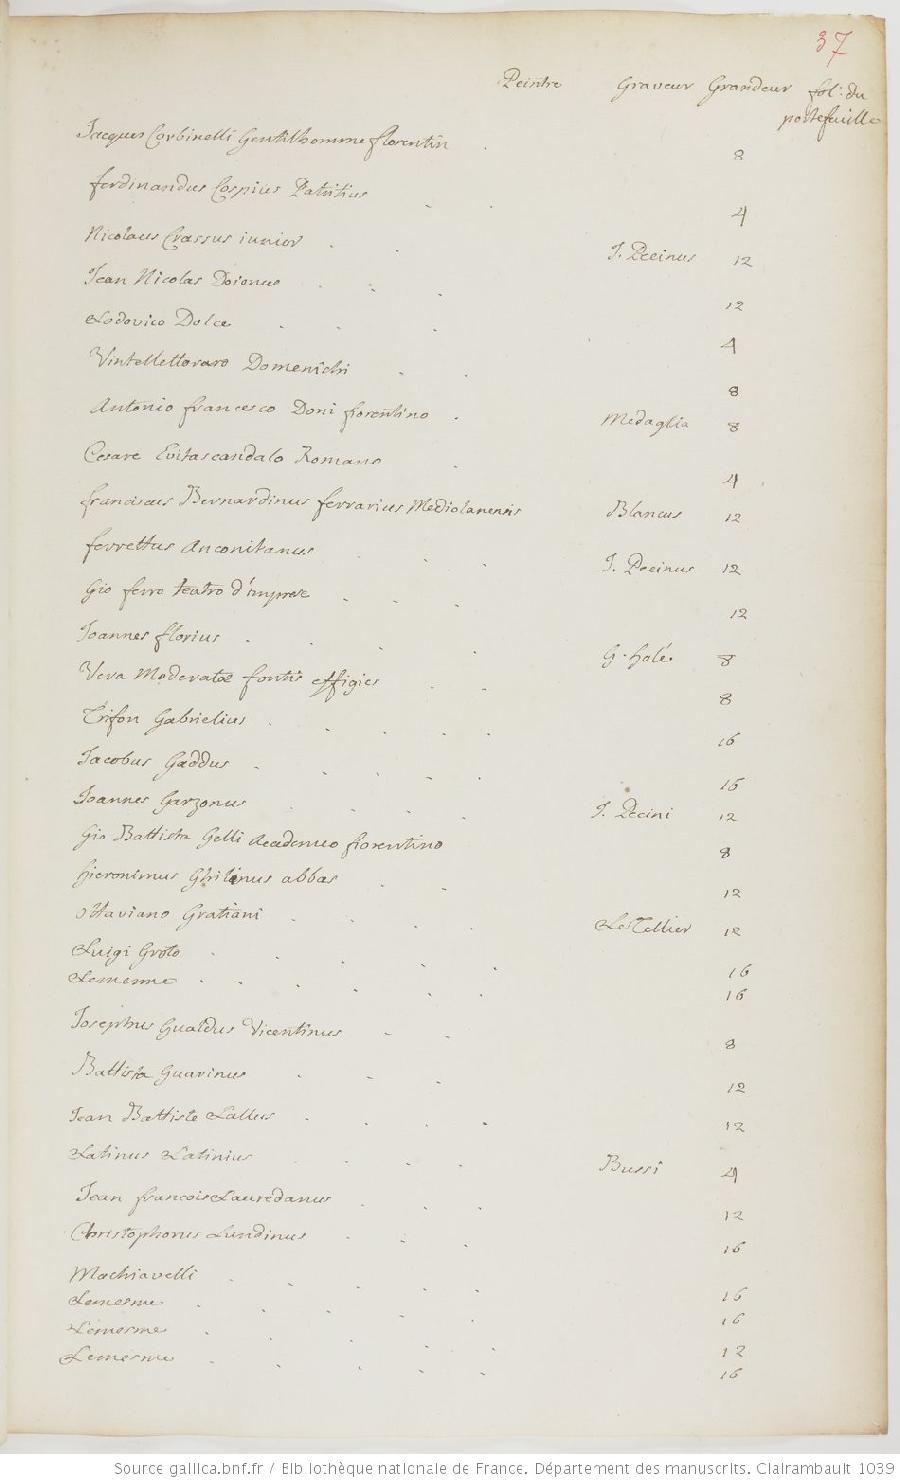 37
Peintre Graveur Grandeur fol: du
portefeuille
Jacques Corbinelli Gentilhomme florentin 8
ferdinandus Cospius Patritius 4
Nicolaus Crassus iunior J. Pecinus 12
Jean Nicolas Doionus 12
Lodovico Dolce 4
Domenichi 8
Antonio francesco Doni fiorentino Medaglia 8
Cesare Evitascandalo Romano 4
franciscus Bernardinus ferrarius Mediolanensis Blancus 12
ferrettus Anconitanus J. Pecinus 12
Gio ferro teatro d'imprese 12
Joannes florius G. holé. 8
Vera Moderatæ fontis effigies 8
Trifon Gabrielius 16
Jacobus Gaddus 16
Joannes Garzonus J. Pecini 12
Gio Battista Gelli Academico fiorentino 8
hieronimus Ghilinus abbas 12
Ottaviano Gratiani Le Tellier 12
Luigi Groto 16
Lemesme 16
Josephus Gualdus Vicentinus 8
Battista Guarinus 12
Jean Battiste Lallus 12
Latinus Latinius Bussi 4
Jean francois Lauredanus 12
Christophorus Lundinus 16
Machiavelli 16
Lemesme 16
Lemesme 12
Lemesme 16
Source gallica.bnf.fr / Bibliothèque nationale de France. Département des manuscrits. Clairambault 1039